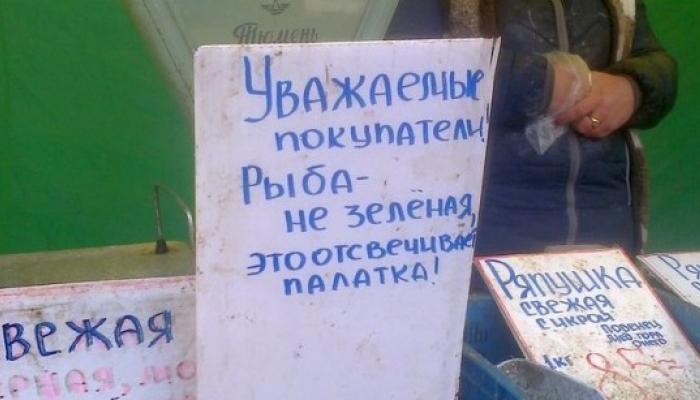 Тюмень
Уважаемые
покупатели!
Рыба-
не зелёная,
это отсвечивает
палатка!
свежая
Ряпушка
свежая
с икрой
1кг
85